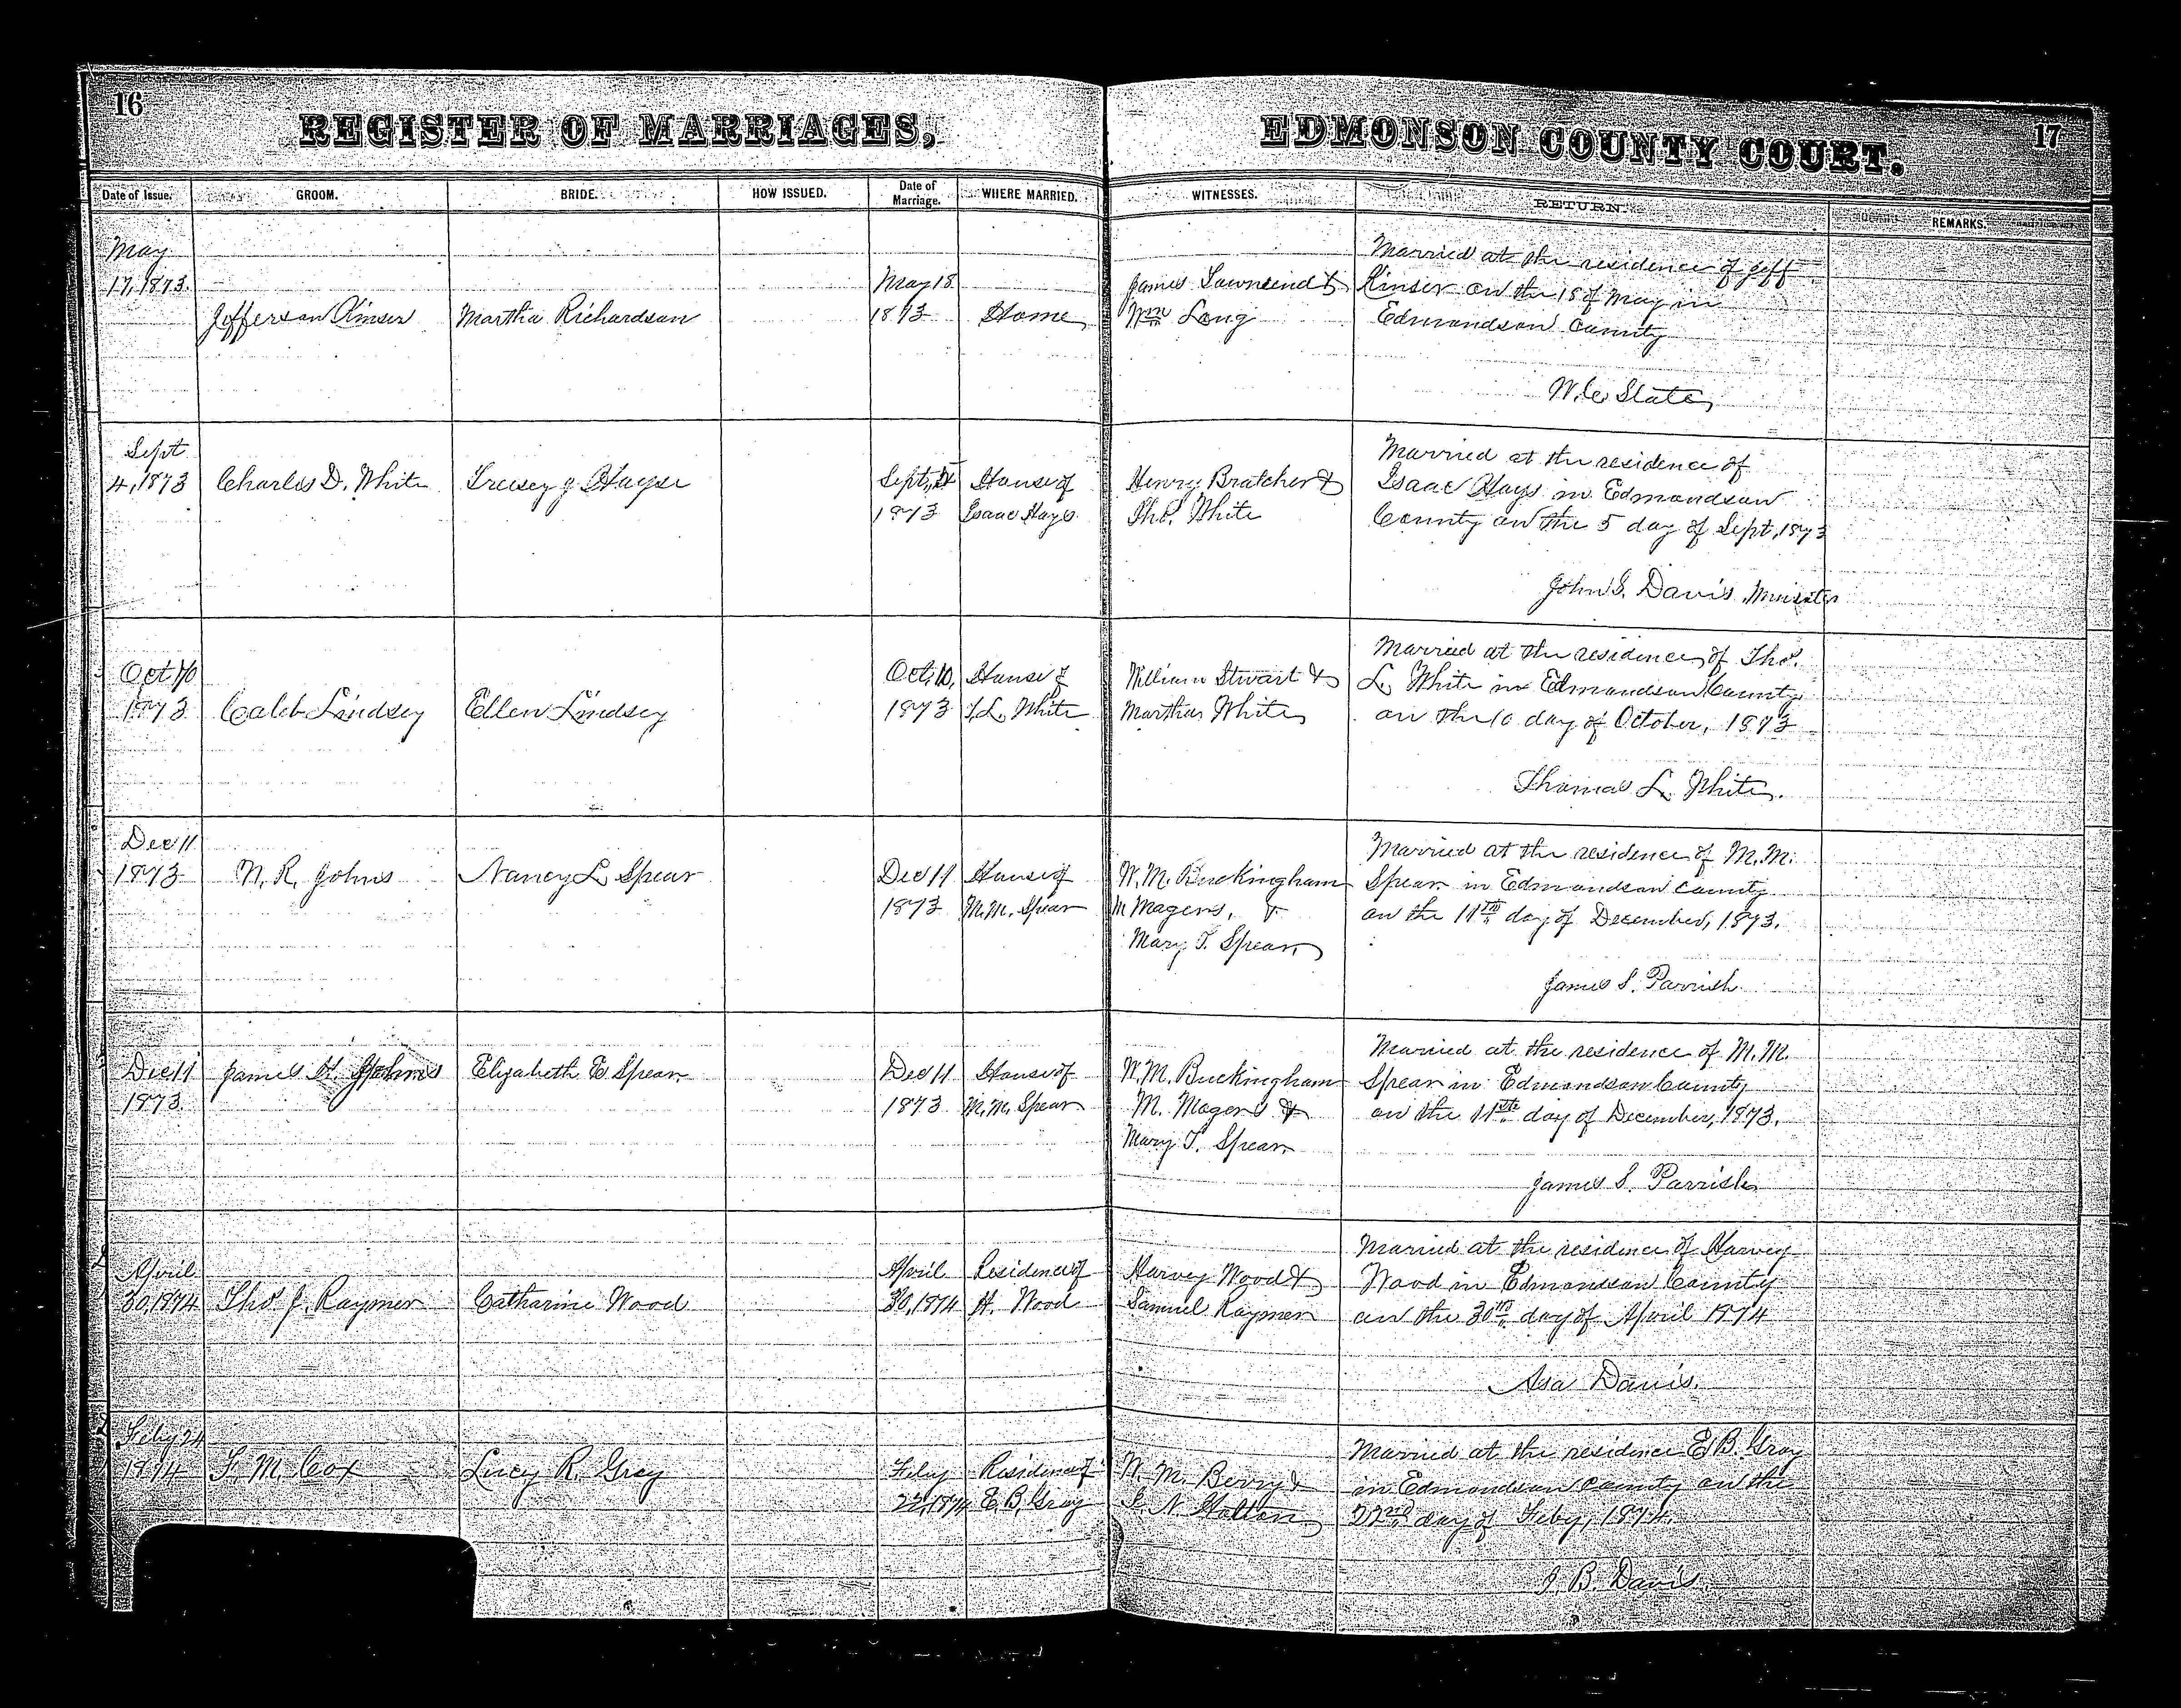 16
REGISTER OF MARRIAGES,
EDMONSON COUNTY COURT.
17
Date of Issue.
GROOM.
BRIDE.
HOW ISSUED.
Date of
Marriage.
WHERE MARRIED.
WITNESSES.
RETURN.
REMARKS.
May
17, 1873.
Jefferson Kinser
Martha Richardson
May 18
1873
Home
James Townsend &
Wm Long
Married at the residence of Jeff
Kinser on the 18 of May in
Edmondson County
W. C. Slate
Sept
4, 1873
Charles D. White
J. Hayse
Sept,
1873
House of
Isaac Hays
Henry Bratcher &
Tho.s White
Married at the residence of
Isaac Hays in Edmondson
County on the 5 day of Sept, 1873
John S. Davis, Minister
Oct 10
1873
Caleb Lindsey
Ellen Lindsey
Oct, 10,
1873
House of
T. L. White
William Stwart &
Martha White
Married at the residence of Tho.s
L. White in Edmondson County
on the 10 day of October, 1873
Thomas L. White.
Dec 11
1873
N. R. Johns
Nancy L. Spear
Dec 11
1873
House of
M. M. Spear
W. M. Buckingham
M Magers, &
Mary T. Spear
Married at the residence of M. M.
Spear in Edmondson County
on the 11th day of December, 1873.
James S. Parrish
Dec 11
1873.
James H. Johns
Elizabeth E Spear
Dec 11
1873
House of
M. M. Spear
W. M. Buckingham
M. Magers &
Mary T. Spear
Married at the residence of M. M.
Spear in Edmondson County
on the 11th day of December, 1873.
James S. Parrish
April
30, 1874
Tho.s J. Raymer
Catharine Wood
April
30, 1874
Residence of
H. Wood
Harvey Wood &
Samuel Raymer
Married at the residence of Harvey
Wood in Edmondson County
on the 30th day of April 1874
Asa Davis.
Feby 24
1874
F. M. Cox
Lucy R. Gray
Feby
22, 1874
Residence of
E. B. Gray
W. M. Berry &
N. Holton
Married at the residence E. B. Gray
in Edmondson County on the
22nd day of Feby, 1874.
J. B. Davis.